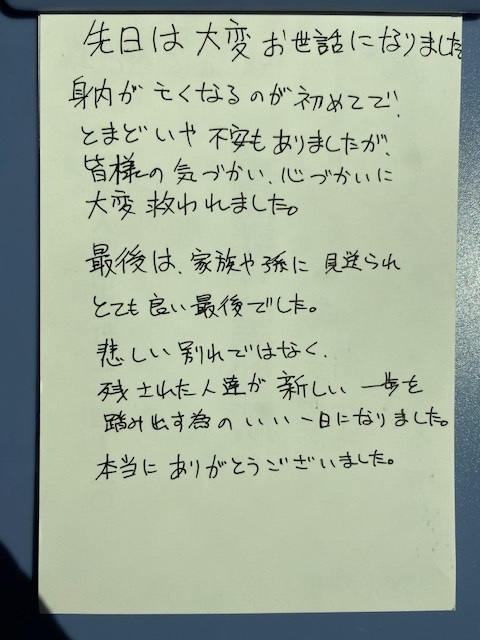 先日は大変お世話になりました
身内が亡くなるのが初めてで、
とまどいや不安もありましたが、
皆様の気づかい、心づかいに
大変救われました。
最後は、家族や孫に見送られ
とても良い最後でした。
悲しい別れではなく、
残された人達が新しい一歩を
踏み出す為のいい一日になりました。
本当にありがとうございました。